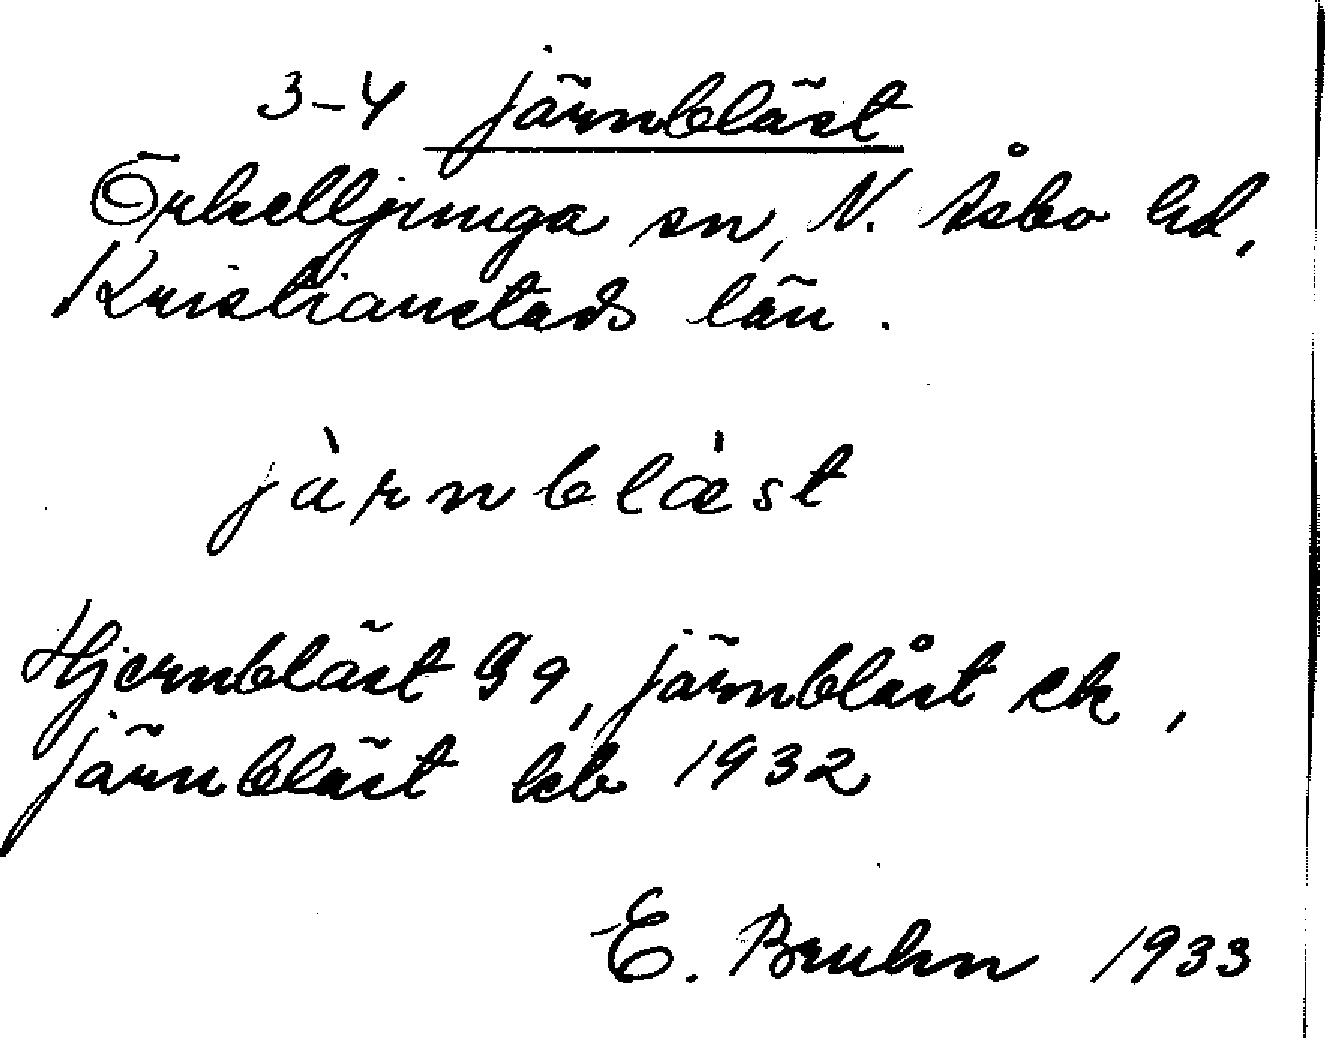 3-4 järnbläst
Örkelljunga sn, N. Åsbo hd,
Kristianstads län.
jàrnblæ̀st
Hjernbläst G9, järnblåst ek,
järnbläst kb 1932
E. Bruhn 1933